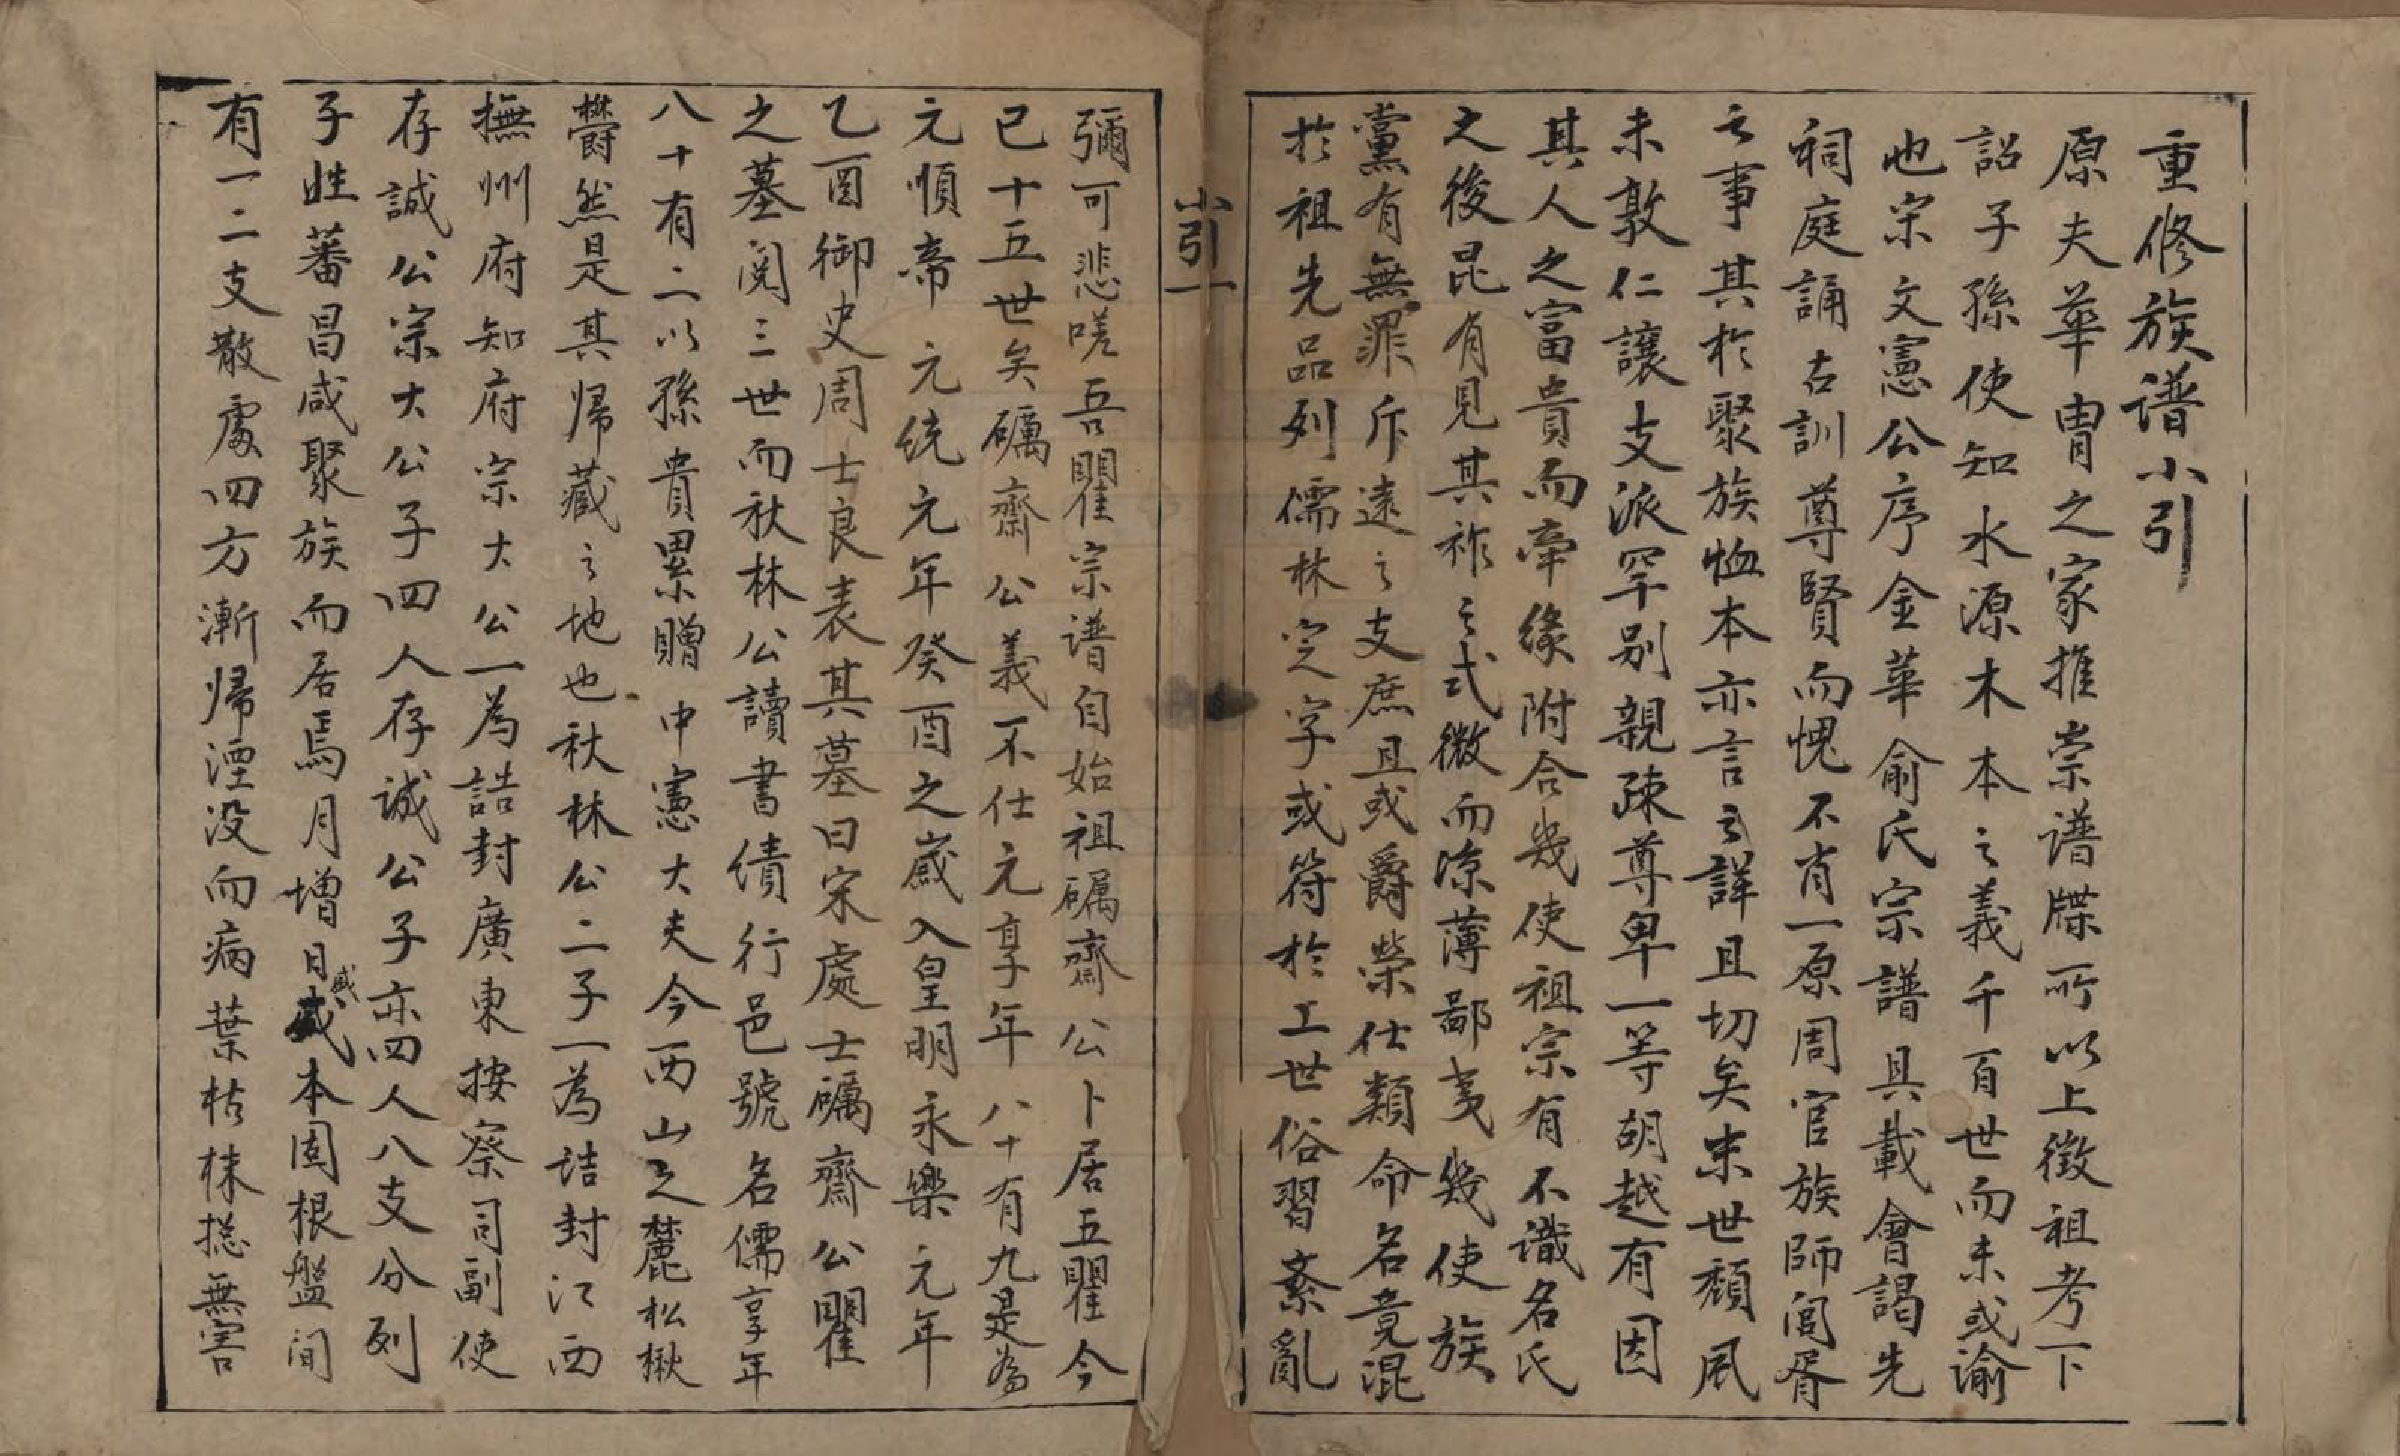 重修族譜小引
原夫華冑之家推崇譜牒所以上徵祖考下
詔子孫使知水源木本之義千百世而未或渝
也宋文憲公序金華俞氏宗譜具載會謁先
祠庭誦古訓尊賢而愧不肖一原周官族師閭胥
之事其於聚族恤本亦言之詳且切矣末世頹風
未敦仁讓支派罕別親疎尊卑一等胡越有因
其人之富貴而牽緣附合幾使祖宗有不識名氏
之後昆有見其祚之式微而涼薄鄙夷幾使族
黨有無罪斥遠之支庶且或爵榮仕類命名竟混
於祖先品列儒林定字或符於工世俗習紊亂
小引一
彌可悲嗟吾瞿宗譜自始祖礪齋公卜居五瞿今
已十五世矣礪齋公義不仕元享年八十有九是為
元順帝元統元年癸酉之歲入皇明永樂元年
乙酉御史周士良表其墓曰宋處士礪齋公瞿
之墓閱三世而秋林公讀書績行邑號名儒享年
八十有二以孫貴累贈中憲大夫今西山之麓松楸
欝然是其帰藏之地也秋林公二子一為誥封江西
撫州府知府宗大公一為誥封廣東按察司副使
存誠公宗大公子四人存誠公子亦四人八支分列
子姓蕃昌咸聚族而居焉月增日盛本固根盤間
有一二支散處四方漸帰湮没而病葉枯株揔無害